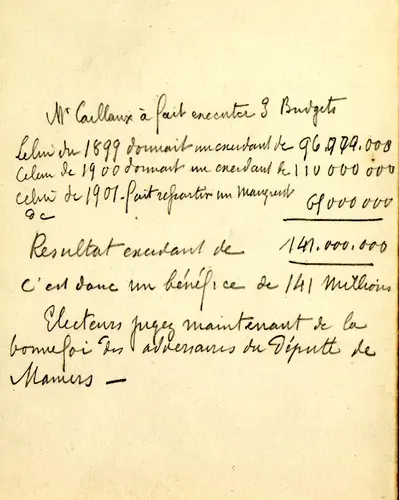 Mr Caillaux à fait executer 3 Budgets
Celui du 1899 donnait un excedant de 96.979.000
Celui de 1900 donnait un excedant de 110 000 000
celui de 1901 fait refsortir un manquant
de 65000000
Resultat excedant de 141.000.000
C'est donc un bénéfice de 141 Millions
Electeurs jugez maintenant de la
bonne foi des adversaires du Députté de
Mamers —